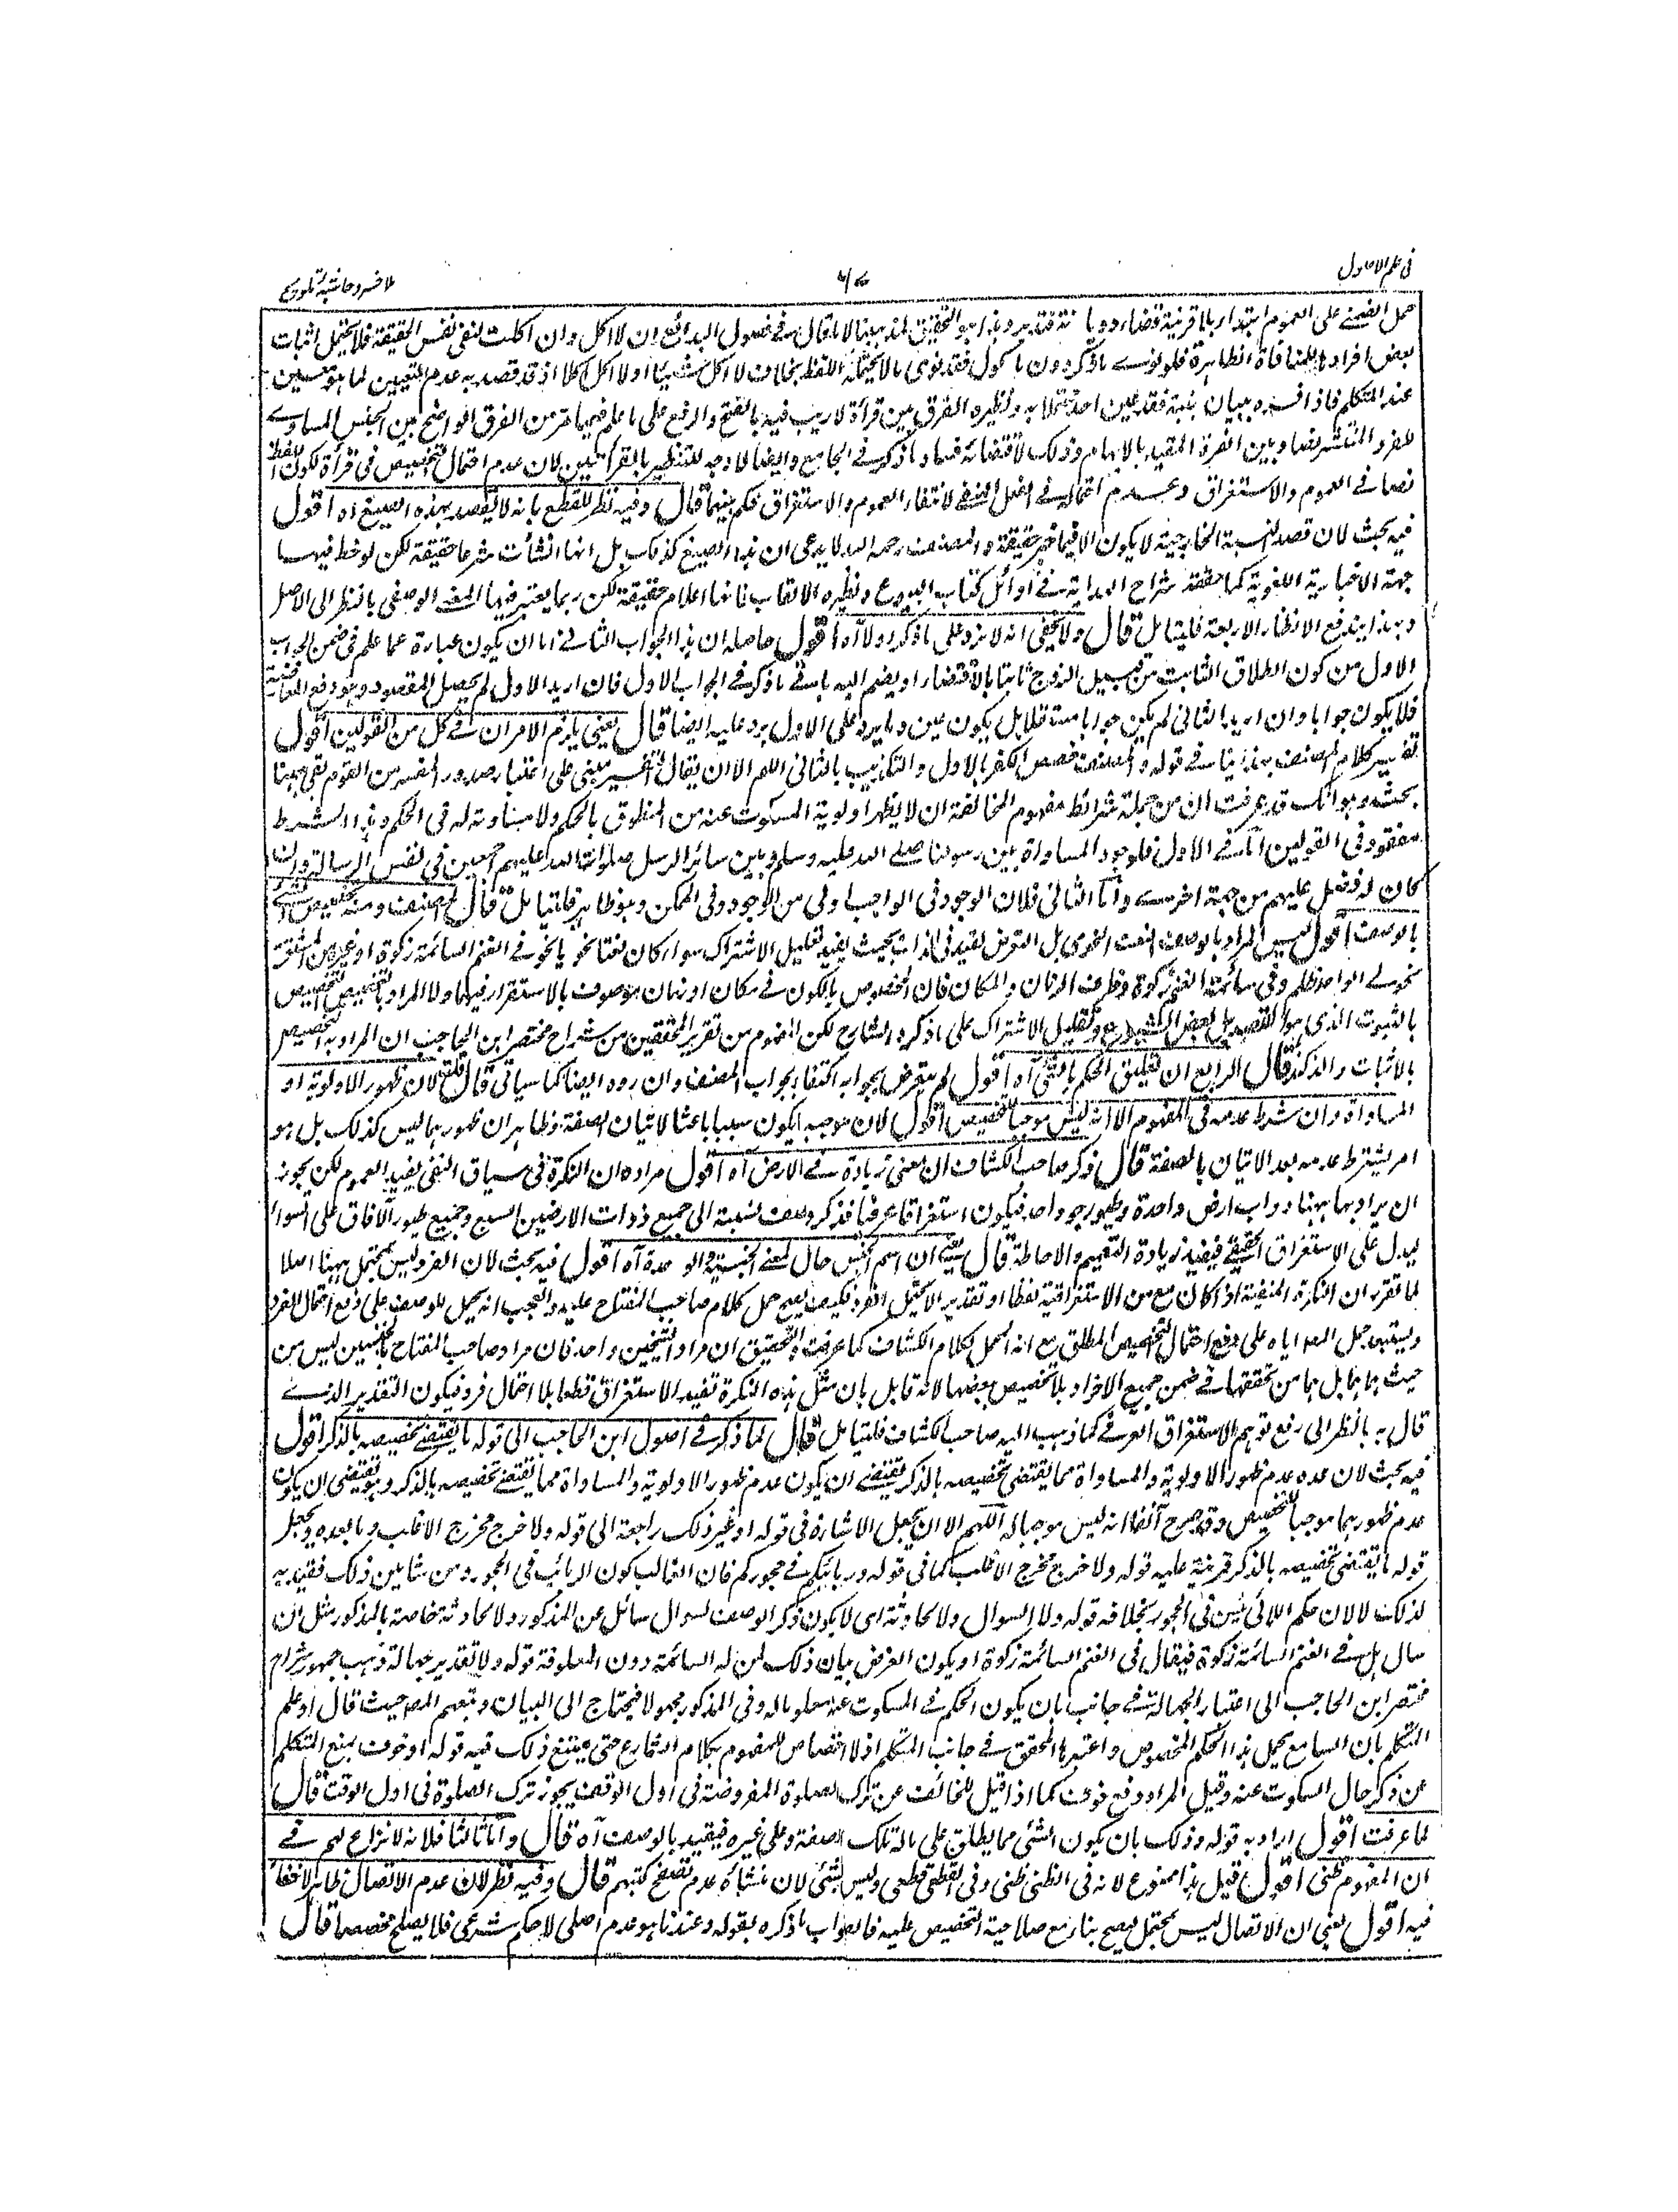 في علم الاصول
ملا خسرو حاشية تلويح
حمل الضمني على العموم ابتداء بلا قرينة قضاء وديانة فتدبر وهذا هو التحقيق لمذهبنا لا ما قال في فصول البدائع ان لا اكل وان اكلت لنفى نفس الحقيقة فلا يحتمل اثبات
بعض افرادها للمنافاة الظاهرة فلو نوى ماكول دون ماكول فقد نوى ما لا يحتمله اللفظ بخلاف لا اكل شيئا او لا اكل اكلا اذ قد قصد به عدم التعيين لما هو متعين
عند المتكلم فاذا فسره ببيان نيته فقد عين احد محتملاته ونظيره الفرق بين قرأة لا ريب فيه بالفتح والرفع على ما علم فيهما من الفرق الواضح بين الجنس المساوى
للفرد المنتشر وبين الفرد المقيد بالابهام وذلك لاقتضائه فساد ما ذكر في الجامع وايضا لا وجه للتنظير بالقرأتين لان عدم احتمال التخصيص فى قرأة لكون اللفظ
نصا في العموم والاستغراق وعدم احتماله في الفعل المنفي لانتفاء العموم والاستغراق فكم بينهما قال وفيه نظر للقطع بانه لا يقصد بهذه الصيغ اه اقول
فيه بحث لان قصد النسبة الخارجية لا يكون الا فيما هو خبر حقيقة والمصنف رحمه الله لا يدعى ان هذه الصيغ كذلك بل انها انشأت شرعا حقيقة لكن لوحظ فيها
جهة الاخبارية اللغوية كما حققه شراح الهداية في اوائل كتاب البيوع ونظيره الالقاب فانها اعلام حقيقة لكن ربما يعتبر فيها المعنى الوصفى بالنظر الى الاصل
وبهذا يندفع الانظار الاربعة فليتامل قال ولا يخفى انه لا يرد على ما ذكره اولا آه اقول حاصله ان هذا الجواب الثاني اما ان يكون عبارة عما علم فى ضمن الجواب
الاول من كون الطلاق الثابت من قبيل الزوج ثابتا بالاقتضاء او يضم اليه باقي ما ذكر في الجواب الاول فان اريد الاول لم يحصل المقصود وهو دفع المعارضة
فلا يكون جوابا وان اريد الثانى لم يكن جوابا مستقلا بل يكون عين وما يرد على الاول يرد عليه ايضا قال يعنى يلزم الامران في كل من القولين اقول
تفسير كلام المصنف بهذا ينافي قوله والمصنف خصص الكفر بالاول والتكذيب بالثانى اللهم الا ان يقال التفسير مبنى على اعتبار صدور المفسر من القوم بقى ههنا
بحث وهو انك قد عرفت ان من جملة شرائط مفهوم المخالفة ان لا يظهر اولوية المسكوت عنه من المنطوق بالحكم ولا مساوته له فى الحكم وهذا الشرط
مفقود فى القولين اما في الاول فلوجود المساواة بين رسولنا صلى الله عليه وسلم وبين سائر الرسل صلوات الله عليهم اجمعين فى نفس الرسالة وان
كان له فضل عليهم من جهة اخرى واما الثانى فلان الوجود فى الواجب اولى من الوجود فى الممكن وهو ظاهر فليتامل قال المصنف ومنه تخصيص الشئ
بالوصف اقول ليس المراد بالوصف النعت النحوى بل التعرض لقيد فى الذات بحيث يفيد تقليل الاشتراك سواء كان نعتا نحويا نحو في الغنم السائمة زكوة او غيره من المشتق
نحو لى الواجد ظلم وفى سائمة الغنم زكوة وظرف الزمان والمكان فان المخصوص بالكون في مكان او زمان موصوف بالاستقرار فيهما ولا المراد بالتخصيص التخصيص
بالثبوت الذى هو القصر بل بعض الشيوع وتقليل الاشتراك على ما ذكره الشارح لكن المفهوم من تقرير المحققين من شراح مختصر ابن الحاجب ان المراد به التخصيص
بالاثبات والذكر قال الرابع ان تعليق الحكم بالشئ آه اقول لم يتعرض لجوابه اكتفاء بجواب المصنف وان رده ايضا كما سياتى قال قلنا لان ظهور الاولوية او
المساواة وان شرط عدمه فى المفهوم الا انه ليس موجبا للتخصيص اقول لان موجبه ما يكون سببا باعثا لاتيان الصفة وظاهر ان ظهورهما ليس كذلك بل هو
امر يشترط عدمه بعد الاتيان بالصفة قال ذكر صاحب الكشاف ان معنى زيادة في الارض آه اقول مراده ان النكرة فى سياق النفى يفيد العموم لكن يجوز
ان يراد بها ههنا دواب ارض واحدة وطيور جو واحد فيكون استغراقا عرفيا فذكر وصف نسبته الى جميع دواب الارضين السبع وجميع طيور الآفاق على السواء
ليدل على الاستغراق الحقيقي فيفيد زيادة التعميم والاحاطة قال يعني ان اسم الجنس حامل لمعنى الجنسية والوحدة آه اقول فيه بحث لان الفرد ليس بمحتمل ههنا اصلا
لما تقرر ان النكرة المنفية اذا كان مع من الاستغراقية لفظا او تقديرا لا يحتمل الفرد فكيف يصح حمل كلام صاحب المفتاح عليه والعجب انه يحمل الوصف على دفع احتمال الفرد
ويستبعد حمل المص اياه على دفع احتمال التخصيص المطلق مع انه اشمل لكلام الكشاف كما عرفت والتحقيق ان مراد الشيخين واحد فان مراد صاحب المفتاح بالجنسين ليس من
حيث هما هما بل هما من تحققهما في ضمن جميع الافراد بلا تخصيص ببعضها لانه قابل بان مثل هذه النكرة تفيد الاستغراق قطعا بلا احتمال فرد فيكون التقدير الذى
قال به بالنظر الى رفع توهم الاستغراق العرفي كما ذهب اليه صاحب الكشاف فليتامل قال لما ذكر في اصول ابن الحاجب الى قوله ما يقتضي تخصيصه بالذكر اقول
فيه بحث لان عده عدم ظهور الاولوية والمساواة مما يقتضى تخصيصه بالذكر يقتضي ان يكون عدم ظهور الاولوية والمساواة مما يقتضي تخصيصه بالذكر وهو يقتضى ان يكون
عدم ظهورهما موجبا للتخصيص وقد صرح آنفا انه ليس موجبا له اللهم الا ان يجعل الاشارة فى قوله او غير ذلك راجعة الى قوله ولا خرج مخرج الاغلب وما بعده ويجعل
قوله ما يقتضى تخصيصه بالذكر قرينة عليه قوله ولا خرج مخرج الاغلب كما فى قوله وربائبكم في حجوركم فان الغالب كون الربائب فى الحجور ومن شانهن ذلك فقيد به
لذلك لا لان حكم اللاتى لسن فى الحجور بخلافه قوله ولا السوال ولا لحادثة اى لا يكون ذكر الوصف لسوال سائل عن المذكور ولا لحادثة خاصة بالمذكور مثل ان
سال هل في الغنم السائمة زكوة فيقال فى الغنم السائمة زكوة او يكون الغرض بيان ذلك لمن له السائمة دون المعلوفة قوله ولا تقدير جهالة ذهب جمهور شراح
مختصر ابن الحاجب الى اعتبار الجهالة في جانب بان يكون الحكم في المسكوت عنه معلوما له وفى المذكور مجهولا فيحتاج الى البيان وتبعهم المص حيث قال او علم
المتكلم بان السامع يجهل هذا الحكم المخصوص واعتبرها المحقق في جانب المتكلم اذ لا اختصاص للمفهوم بكلام الشارع حتى يمتنع ذلك فيه قوله او خوف يمنع المتكلم
عن ذكر حال المسكوت عنه وقيل المراد دفع خوف كما اذا قيل للخائف عن ترك الصلوة المفروضة فى اول الوقت يجوز ترك الصلوة فى اول الوقت قال
لما عرفت اقول اراد به قوله وذلك بان يكون الشئ مما يطلق على ما له تلك الصفة وعلى غيره فيقيد بالوصف آه قال واما ثالثا فلانه لا نزاع لهم في
ان المفهوم ظنى اقول قيل هذا ممنوع لانه فى الظنى ظنى وفى القطعى قطعى وليس بشئ لان منشأه عدم تصفح كتبهم قال وفيه نظر لان عدم الاتصال ظاهر لا خفاء
فيه اقول يعنى ان الاتصال ليس بمحتمل ليصح بناء مع صلاحية التخصيص عليه فالصواب ما ذكره بقوله وعندنا هو عدم اصلى لا حكم شرعى فلا يصلح مخصصا قال